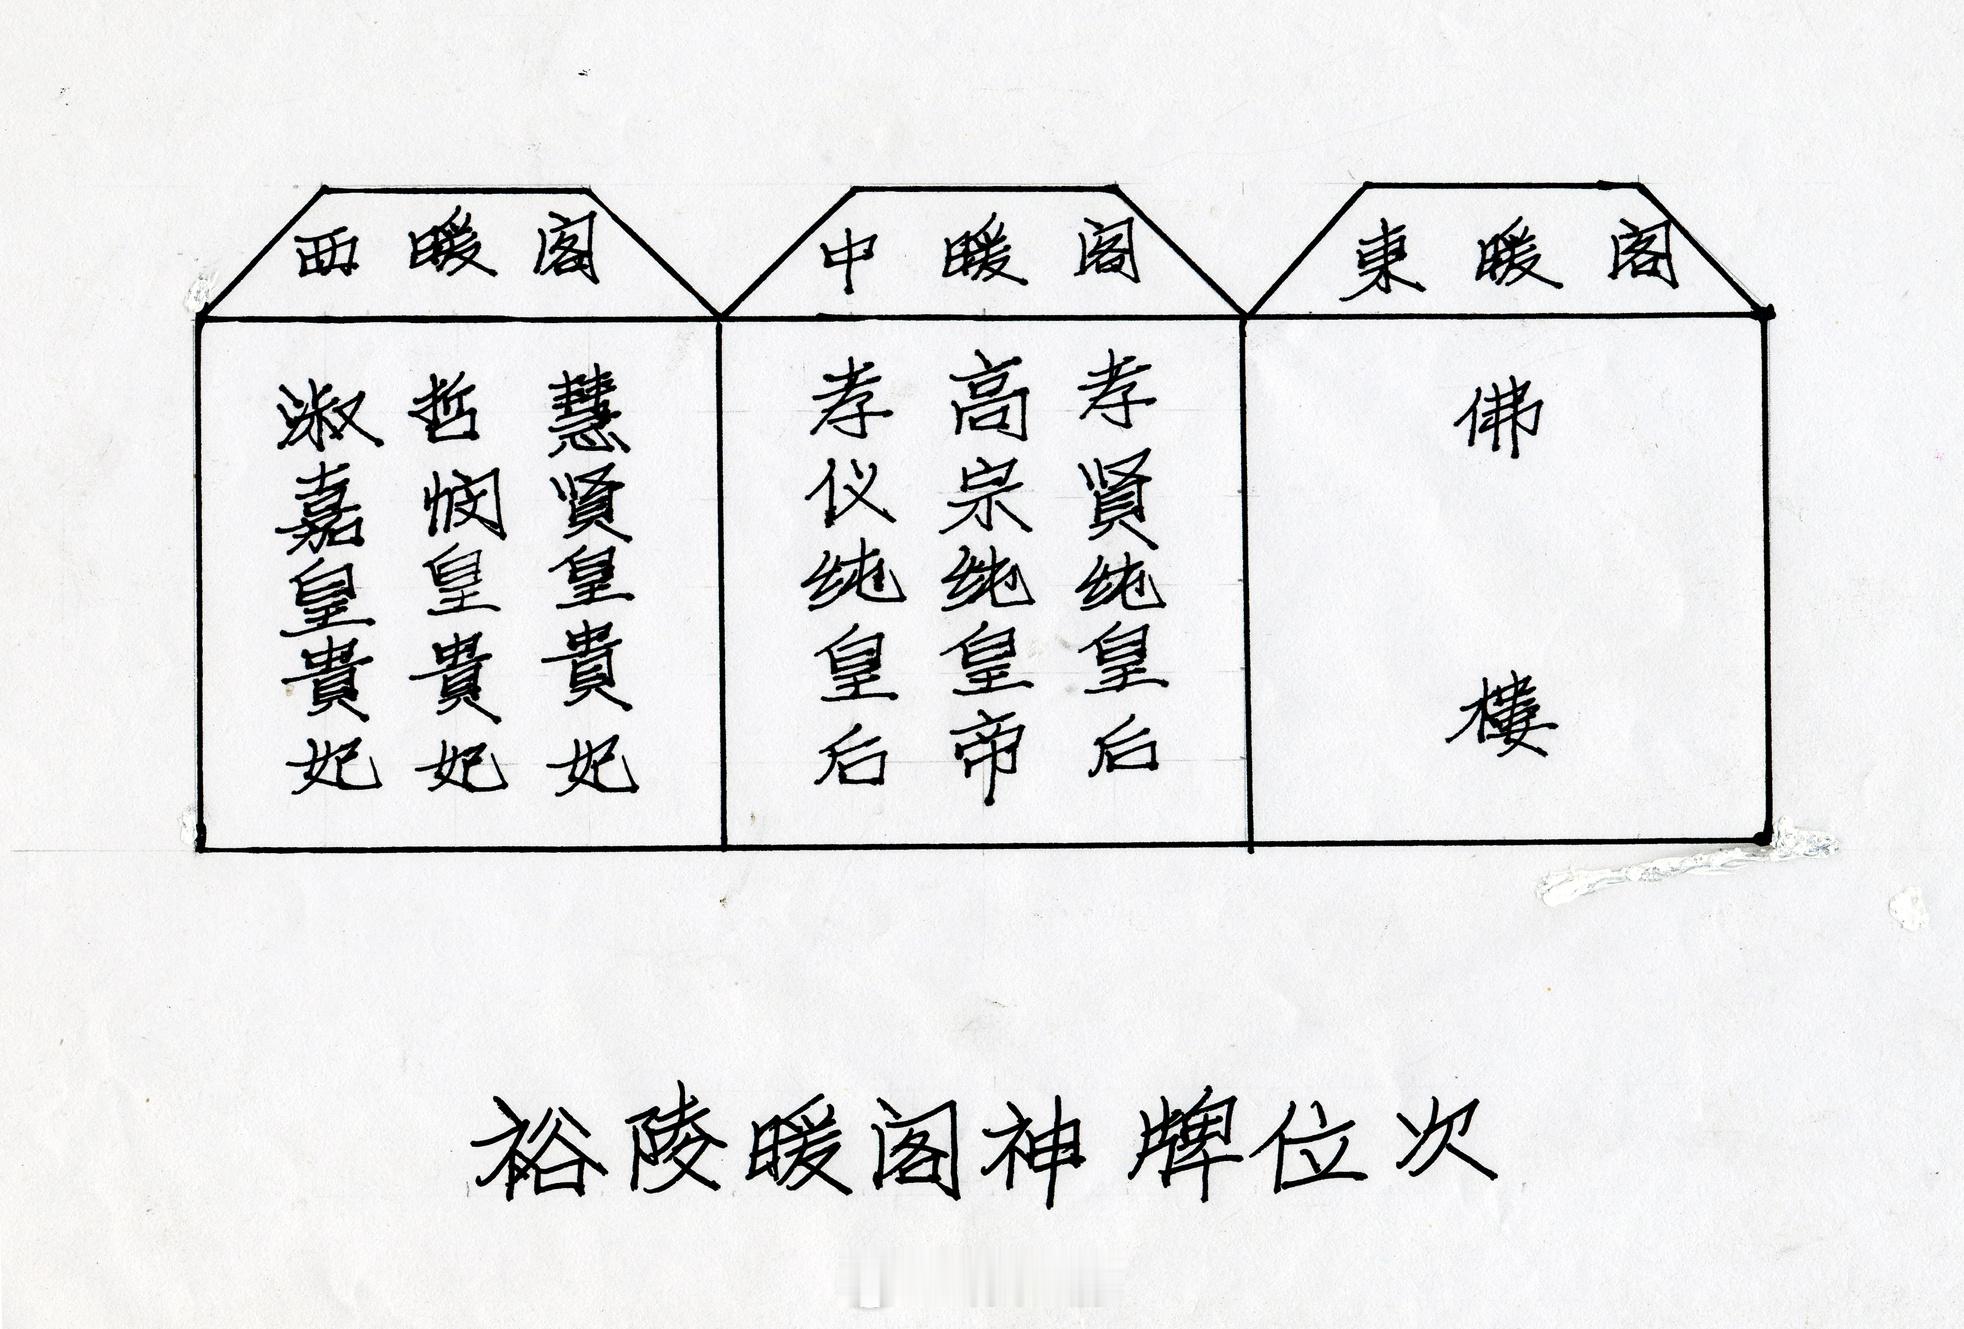 西暖阁
中暖阁
東暖阁
慧贤皇貴妃
哲悯皇貴妃
淑嘉皇貴妃
孝賢纯皇后
高宗纯皇帝
孝仪纯皇后
佛樓
裕陵暖阁神牌位次